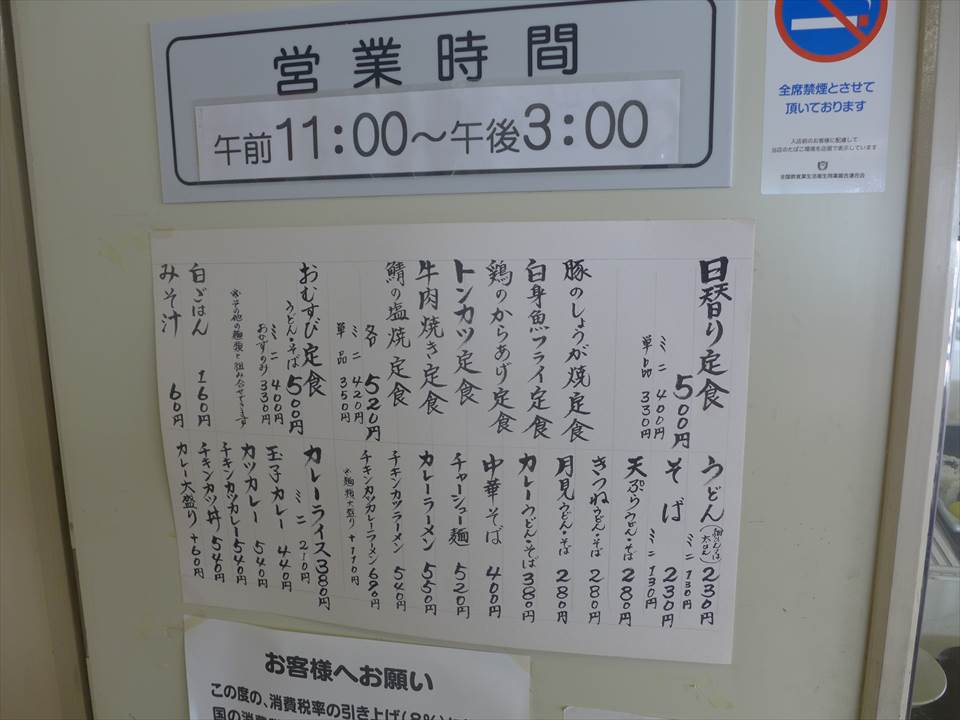 営業時間
午前11:00～午後3:00
全席禁煙とさせて
頂いております
入店前のお客様に配慮して
当店のたばこ環境を店頭で表示しています
全国飲食業生活衛生同業組合連合会
日替り定食 500円
ミニ 400円
単品 330円
豚のしょうが焼定食
白身魚フライ定食
鶏のからあげ定食
トンカツ定食
牛肉焼き定食
鯖の塩焼定食
各 520円
ミニ 420円
単品 350円
おむすび定食
うどん・そば 500円
ミニ 400円
おかずのみ 330円
※その他の麺類と組み合せできます
白ごはん 160円
みそ汁 60円
うどん 230円
ミニ 130円
そば 230円
ミニ 130円
天ぷらうどん・そば 280円
きつねうどん・そば 280円
月見うどん・そば 280円
カレーうどん・そば 380円
中華そば 400円
チャーシュー麺 520円
カレーラーメン 550円
チキンカツラーメン 540円
チキンカツカレーラーメン 690円
※麺類大盛り +110円
カレーライス 380円
ミニ 210円
玉子カレー 440円
カツカレー 540円
チキンカツカレー 540円
チキンカツ丼 540円
カレー大盛り +60円
お客様へお願い
この度の、消費税率の引き上げ(8%)に
国の消費